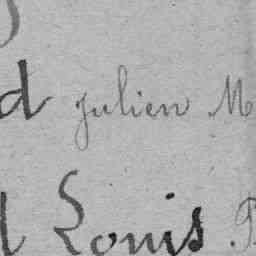 d Julien M
d Louis P